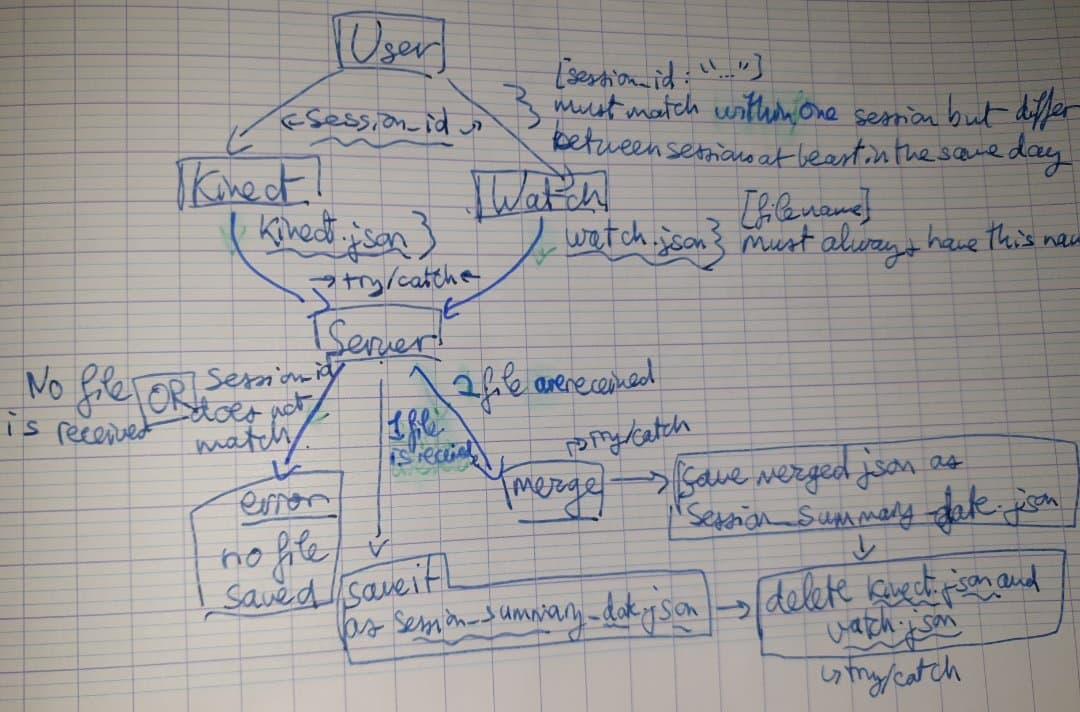 User
[session_id : "..."]
must match within one session but differ
between sessions at least in the same day
session_id
Kinect
Watch
[filename]
kinect.json
watch.json
must always have this nam
try/catch
Server
No file OR session_id
is received does not
match
2 file are received
1 file
is received
try/catch
merge
save merged json as
Session_Summary_date.json
error
no file
saved
save it
as session_summary_date.json
delete kinect.json and
watch.json
try/catch